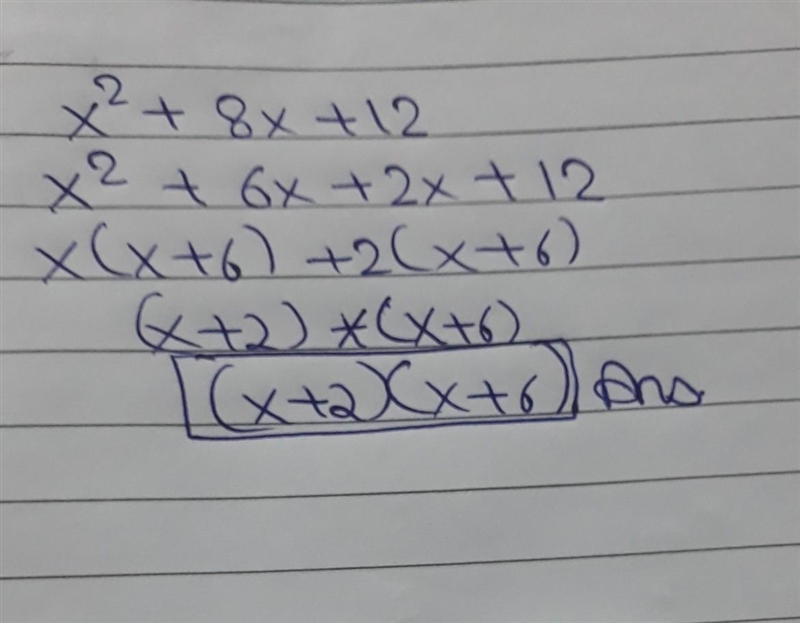 x² + 8x + 12
x² + 6x + 2x + 12
x(x+6) +2(x+6)
(x+2) *(x+6)
(x+2)(x+6) Ans